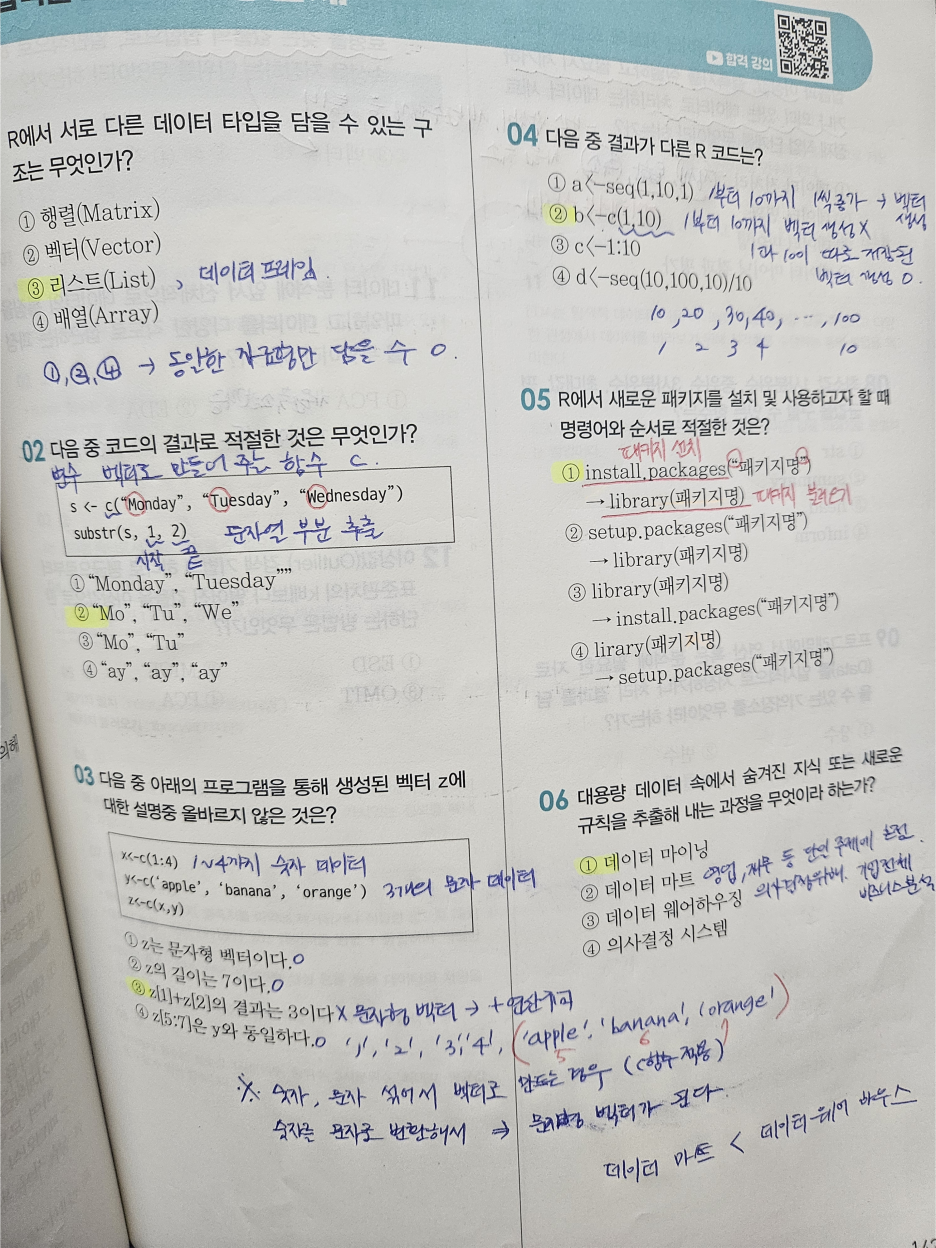 합격 강의
R에서 서로 다른 데이터 타입을 담을 수 있는 구
조는 무엇인가?
① 행렬(Matrix)
② 벡터(Vector)
③ 리스트(List) , 데이터 프레임.
④ 배열(Array)
①,②,④ → 동일한 자료형만 담을 수 O.
02 다음 중 코드의 결과로 적절한 것은 무엇인가?
벡터로 만들어 주는 함수 c.
s <- c("Monday", "Tuesday", "Wednesday")
substr(s, 1, 2) 문자열 부분 추출
시작 끝
① "Monday", "Tuesday""
② "Mo", "Tu", "We"
③ "Mo", "Tu"
④ "ay", "ay", "ay"
03 다음 중 아래의 프로그램을 통해 생성된 벡터 z에
대한 설명중 올바르지 않은 것은?
x<-c(1:4) 1~4까지 숫자 데이터
y<-c('apple', 'banana', 'orange') 3개의 문자 데이터
z<-c(x,y)
① z는 문자형 벡터이다. O
② z의 길이는 7이다. O
③ z[1]+z[2]의 결과는 3이다 X 문자형 벡터 → + 연산불가
④ z[5:7]은 y와 동일하다. O '1', '2', '3', '4', ('apple', 'banana', 'orange')
5 6 7
※ 숫자, 문자 섞어서 벡터로 만드는 경우 (c함수 적용)
숫자를 문자로 변환해서 ⇒ 문자형 벡터가 된다.
04 다음 중 결과가 다른 R 코드는?
① a<-seq(1,10,1) 1부터 10까지 1씩증가 → 벡터
생성
② b<-c(1,10) 1부터 10까지 벡터 생성 X
③ c<-1:10 1과 10이 따로 저장된
벡터 생성 O.
④ d<-seq(10,100,10)/10
10, 20, 30, 40, …, 100
1 2 3 4 10
05 R에서 새로운 패키지를 설치 및 사용하고자 할 때
명령어와 순서로 적절한 것은?
패키지 설치
① install.packages("패키지명")
→ library(패키지명) 패키지 불러오기
② setup.packages("패키지명")
→ library(패키지명)
③ library(패키지명)
→ install.packages("패키지명")
④ lirary(패키지명)
→ setup.packages("패키지명")
06 대용량 데이터 속에서 숨겨진 지식 또는 새로운
규칙을 추출해 내는 과정을 무엇이라 하는가?
① 데이터 마이닝
② 데이터 마트 영업, 재무 등 단일 주제에 초점.
③ 데이터 웨어하우징 의사결정위해. 기업전체
비즈니스분석
④ 의사결정 시스템
데이터 마트 < 데이터 웨어 하우스